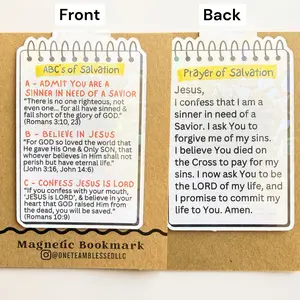 Front
ABC's of Salvation
A - ADMIT YOU ARE A
SINNER IN NEED OF A SAVIOR
"There is no one righteous, not
even one... for all have sinned &
fall short of the glory of GOD."
(Romans 3:10, 23)
B - BELIEVE IN JESUS
"For GOD so loved the world that
He gave His One & Only SON, that
whoever believes in Him shall not
perish but have eternal life."
(John 3:16, John 14:6)
C - CONFESS JESUS IS LORD
"If you confess with your mouth,
'JESUS is LORD', & believe in your
heart that GOD raised Him from
the dead, you will be saved."
(Romans 10:9)
Magnetic Bookmark
@ONETEAMBLESSEDLLC
Back
Prayer of Salvation
Jesus,
I confess that I am a
sinner in need of a
Savior. I ask You to
forgive me of my sins.
I believe You died on
the Cross to pay for my
sins. I now ask You to be
the LORD of my life, and
I promise to commit my
life to You. Amen.